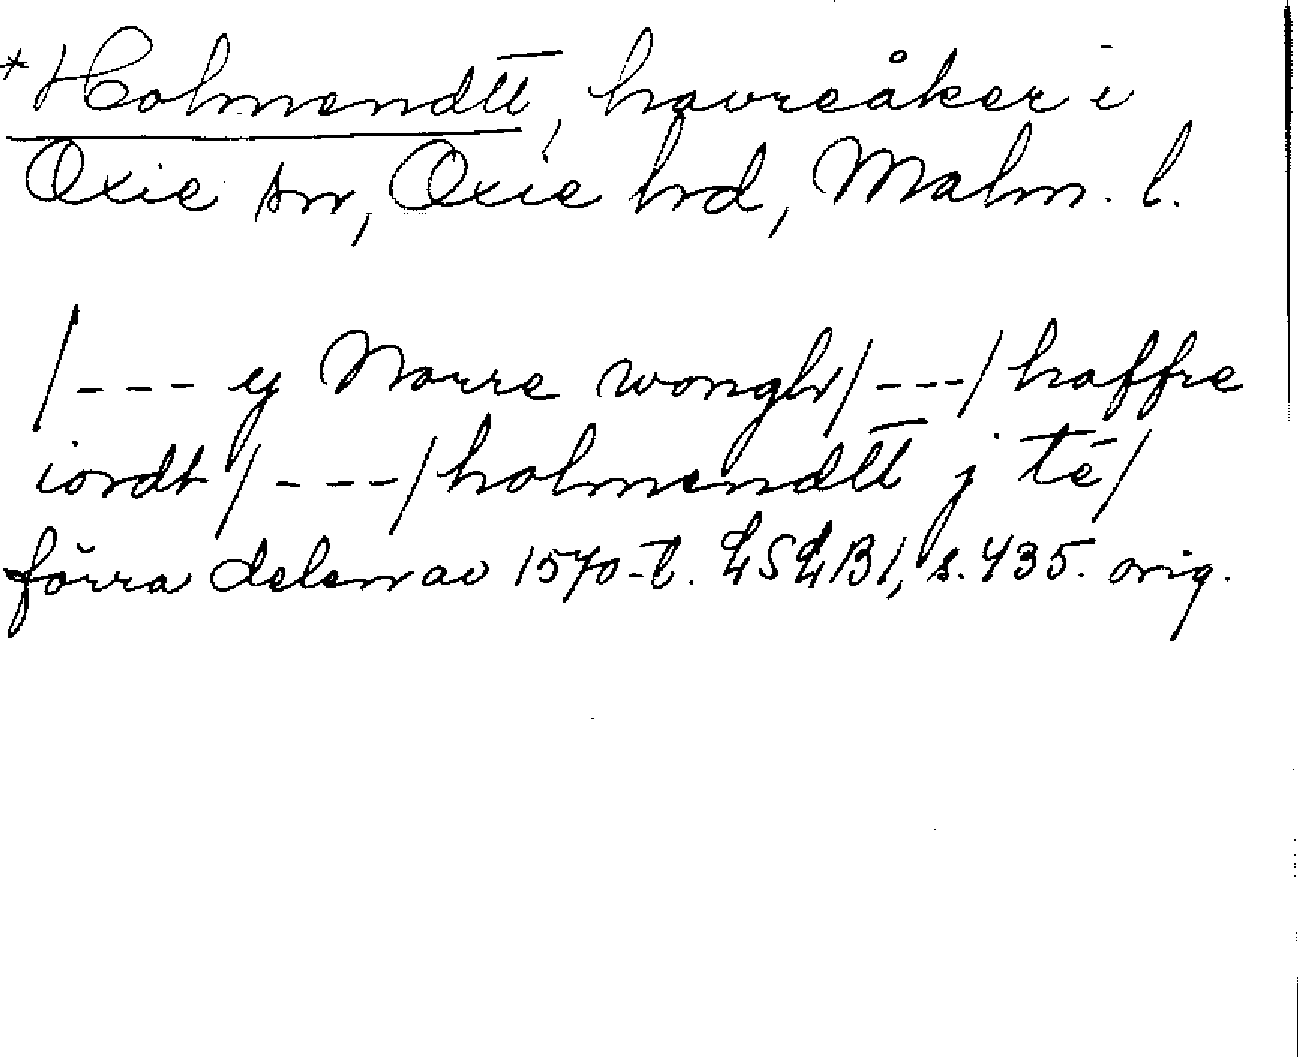 *Holmendtt, havreåker i
Oxie sn, Oxie hd, Malm. l.
/--- y Norre wongh/---/haffre
iordt/---/holmendtt j té/
förra delen av 1570-t. LSLB1, s. 435. orig.